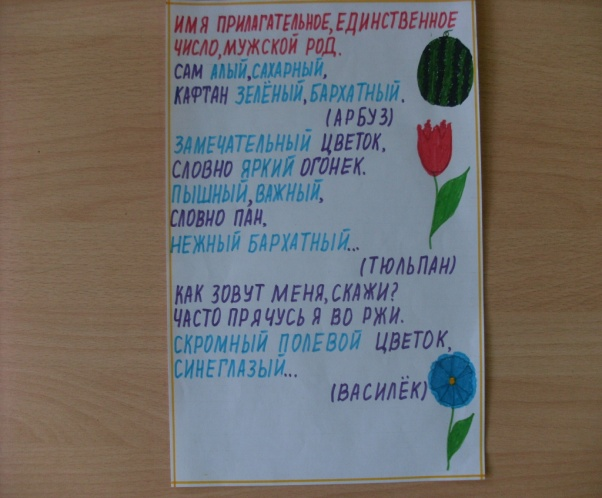 ИМЯ ПРИЛАГАТЕЛЬНОЕ, ЕДИНСТВЕННОЕ
ЧИСЛО, МУЖСКОЙ РОД.
САМ АЛЫЙ, САХАРНЫЙ,
КАФТАН ЗЕЛЁНЫЙ, БАРХАТНЫЙ.
(АРБУЗ)
ЗАМЕЧАТЕЛЬНЫЙ ЦВЕТОК,
СЛОВНО ЯРКИЙ ОГОНЕК.
ПЫШНЫЙ, ВАЖНЫЙ,
СЛОВНО ПАН,
НЕЖНЫЙ БАРХАТНЫЙ...
(ТЮЛЬПАН)
КАК ЗОВУТ МЕНЯ, СКАЖИ?
ЧАСТО ПРЯЧУСЬ Я ВО РЖИ.
СКРОМНЫЙ ПОЛЕВОЙ ЦВЕТОК,
СИНЕГЛАЗЫЙ...
(ВАСИЛЁК)